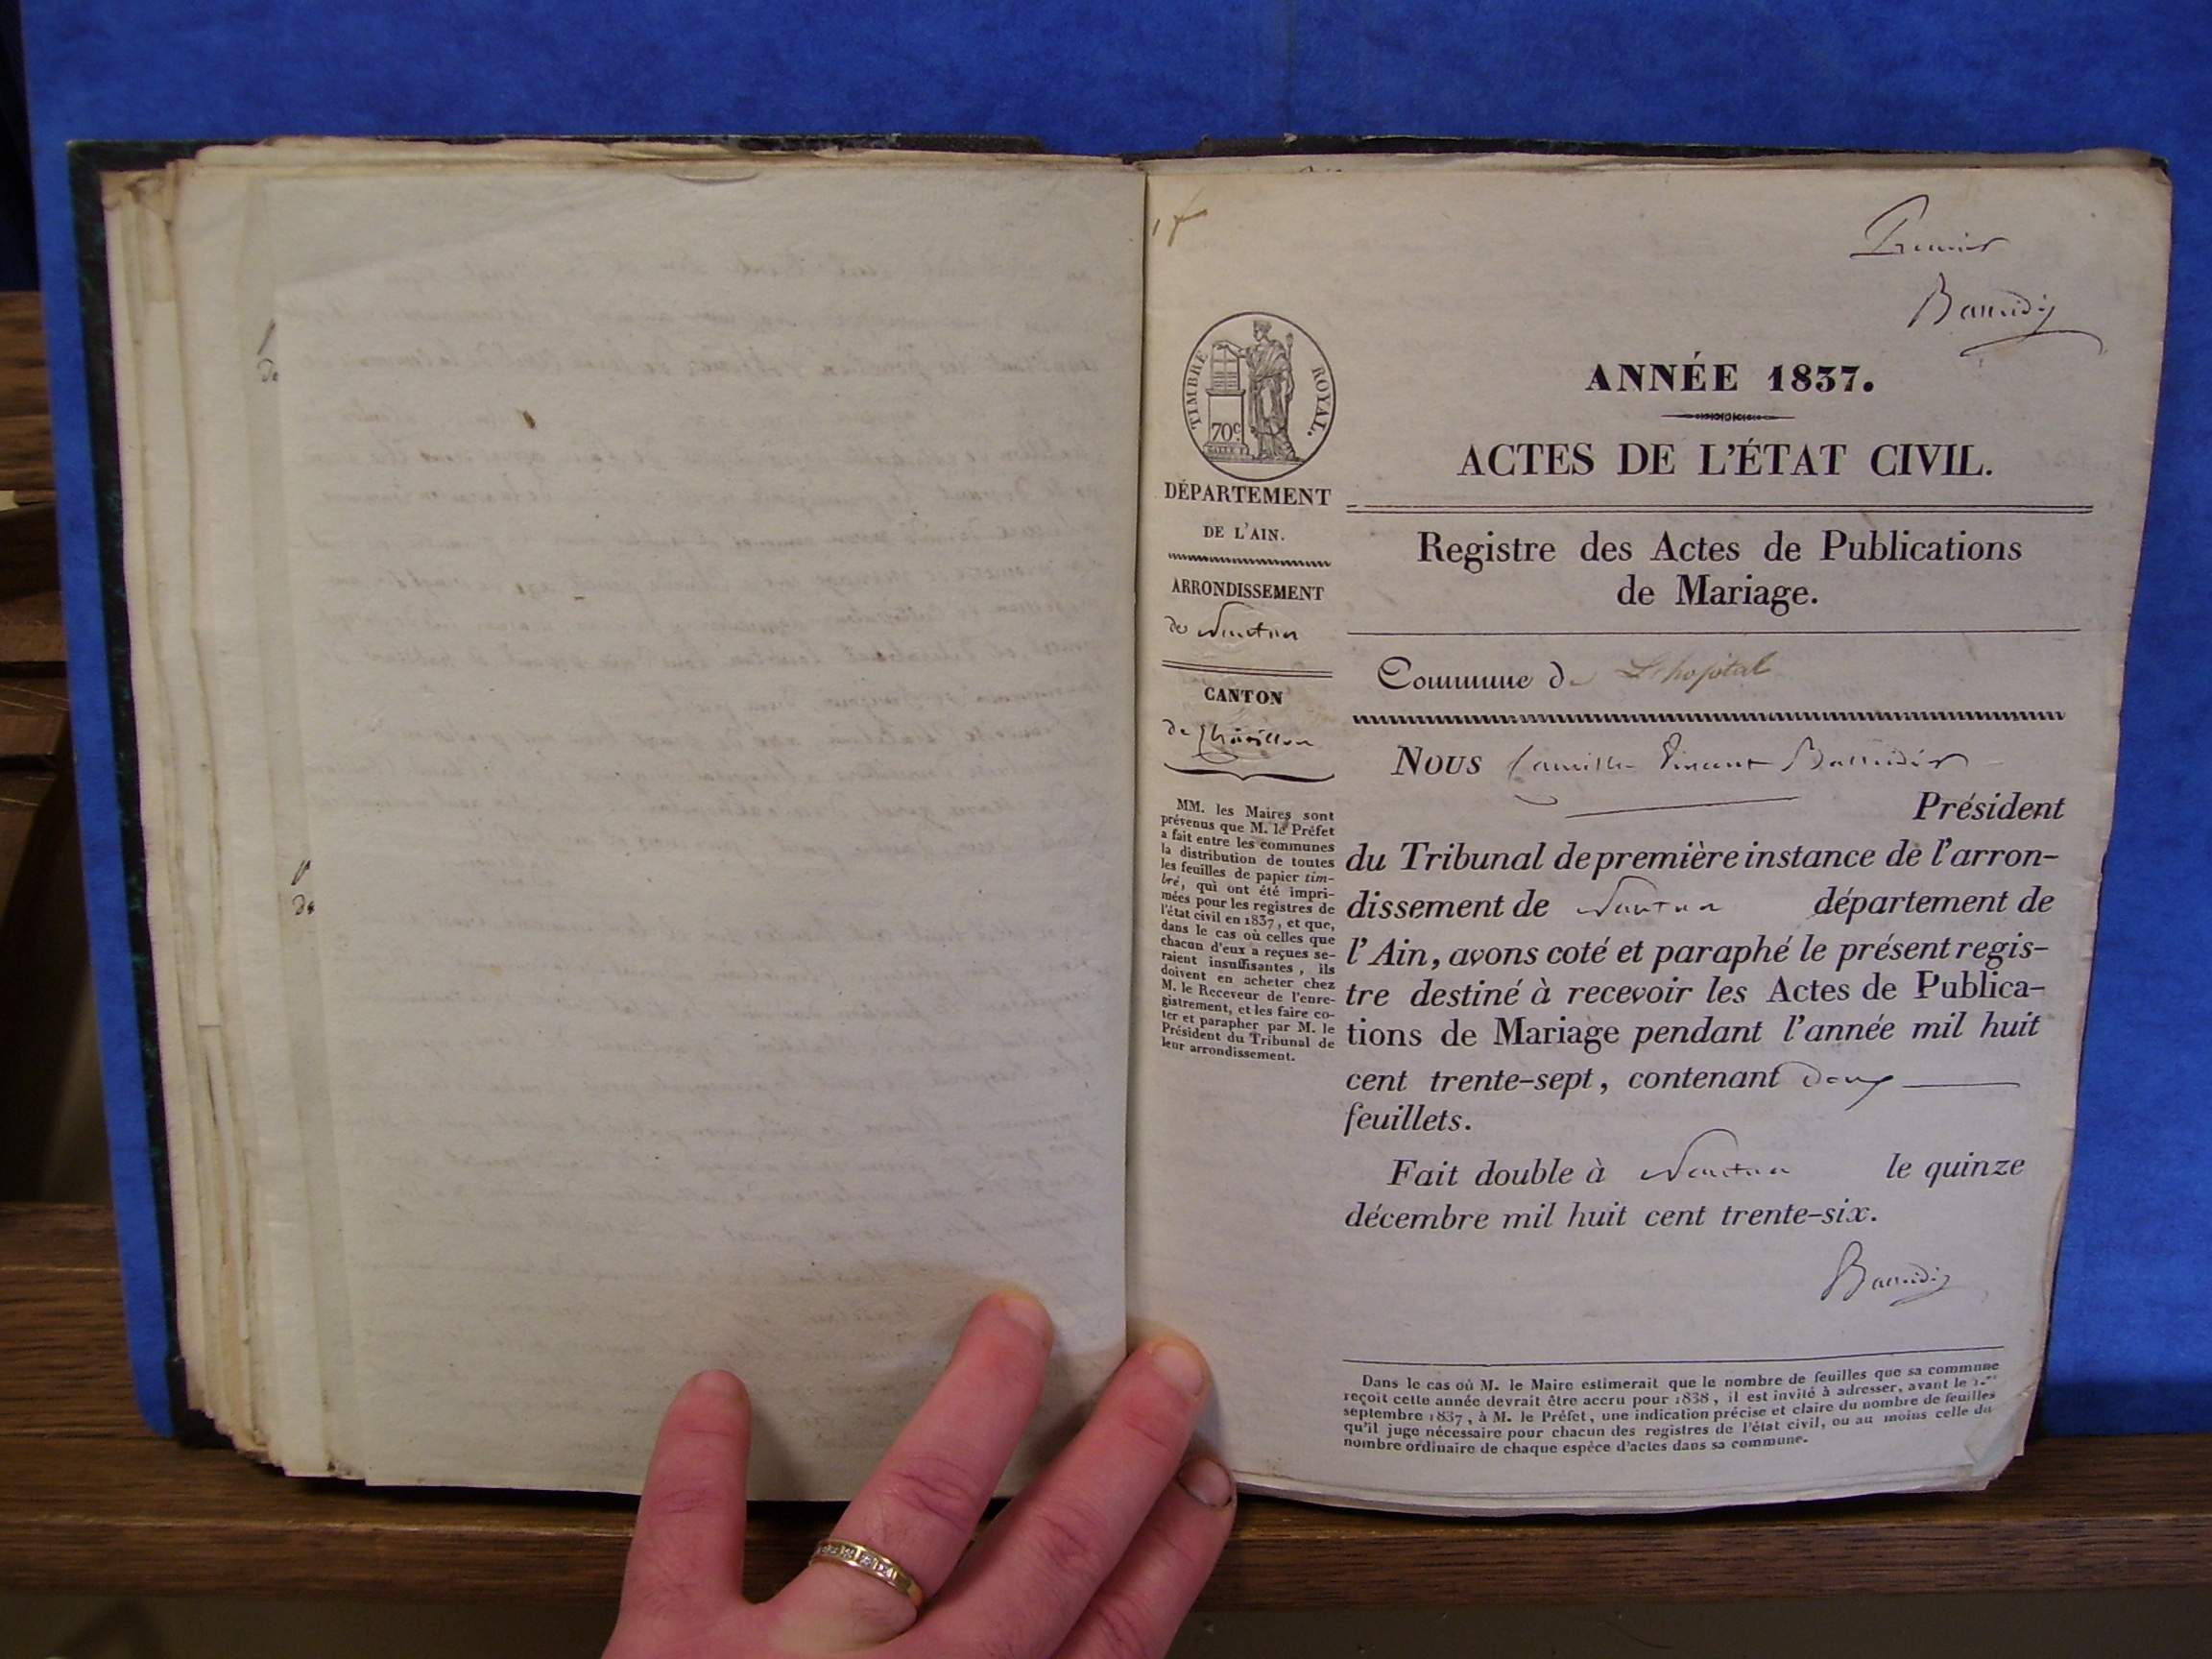 Premier
ANNÉE 1837.
ACTES DE L'ÉTAT CIVIL.
Registre des Actes de Publications
de Mariage.
Commune de L'hopital
TIMBRE ROYAL.
70c
DÉPARTEMENT
DE L'AIN.
ARRONDISSEMENT
de Nantua
CANTON
de Chatillon
MM. les Maires sont
prévenus que M. le Préfet
a fait entre les communes
la distribution de toutes
les feuilles de papier tim-
bré, qui ont été impri-
mées pour les registres de
l'état civil en 1837, et que,
dans le cas où celles que
chacun d'eux a reçues se-
raient insuffisantes, ils
doivent en acheter chez
M. le Receveur de l'enre-
gistrement, et les faire co-
ter et parapher par M. le
Président du Tribunal de
leur arrondissement.
Nous Camille Vincent
Président
du Tribunal de première instance de l'arron-
dissement de Nantua département de
l'Ain, avons coté et paraphé le présent regis-
tre destiné à recevoir les Actes de Publica-
tions de Mariage pendant l'année mil huit
cent trente-sept, contenant deux
feuillets.
Fait double à Nantua le quinze
décembre mil huit cent trente-six.
Dans le cas où M. le Maire estimerait que le nombre de feuilles que sa commune
reçoit cette année devrait être accru pour 1838, il est invité à adresser, avant le 1.er
septembre 1837, à M. le Préfet, une indication précise et claire du nombre de feuilles
qu'il juge nécessaire pour chacun des registres de l'état civil, ou au moins celle du
nombre ordinaire de chaque espèce d'actes dans sa commune.